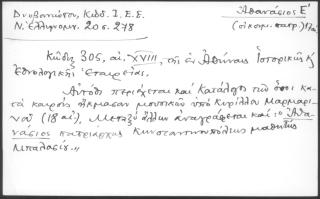 Δυοβουνιώτου, Κώδ. Ι. Ε. Ε. Ἀθανάσιος Ε'
Ν. Ἑλληνομν. 20 σ. 278 (οἰκουμ. πατρ.)
Κῶδιξ 305, αἰ. XVIII, τῆς ἐν Ἀθήναις Ἱστορικῆς &
Ἐθνολογικῆς Ἑταιρείας.
Αὐτόθι περιέχεται καὶ Κατάλογος τῶν ὅσοι κα-
τὰ καιροὺς ἤκμασαν μουσικοὶ ὑπὸ Κυρίλλου Μαρμαρι-
νοῦ (18 αἰ). Μεταξὺ ἄλλων ἀναγράφεται καὶ: ὁ Ἀθα-
νάσιος πατριάρχης Κωνσταντινουπόλεως μαθητὴς
Μπαλασίου.,,